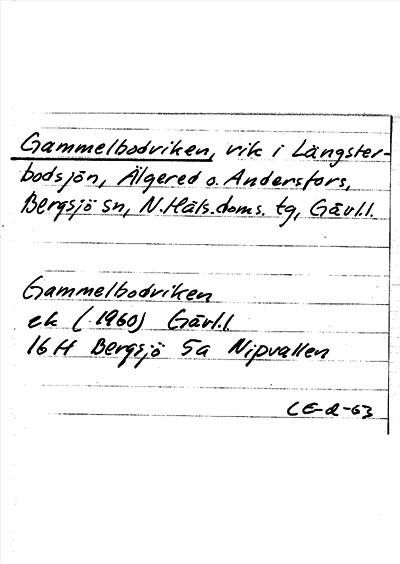 Gammelbodviken, vik i Längster-
bodsjön, Älgered o. Andersfors,
Bergsjö sn, N.Häls.doms. tg, Gävl.l.
Gammelbodviken
ek (1960) Gävl.l.
16 H Bergsjö 5a Nipvallen